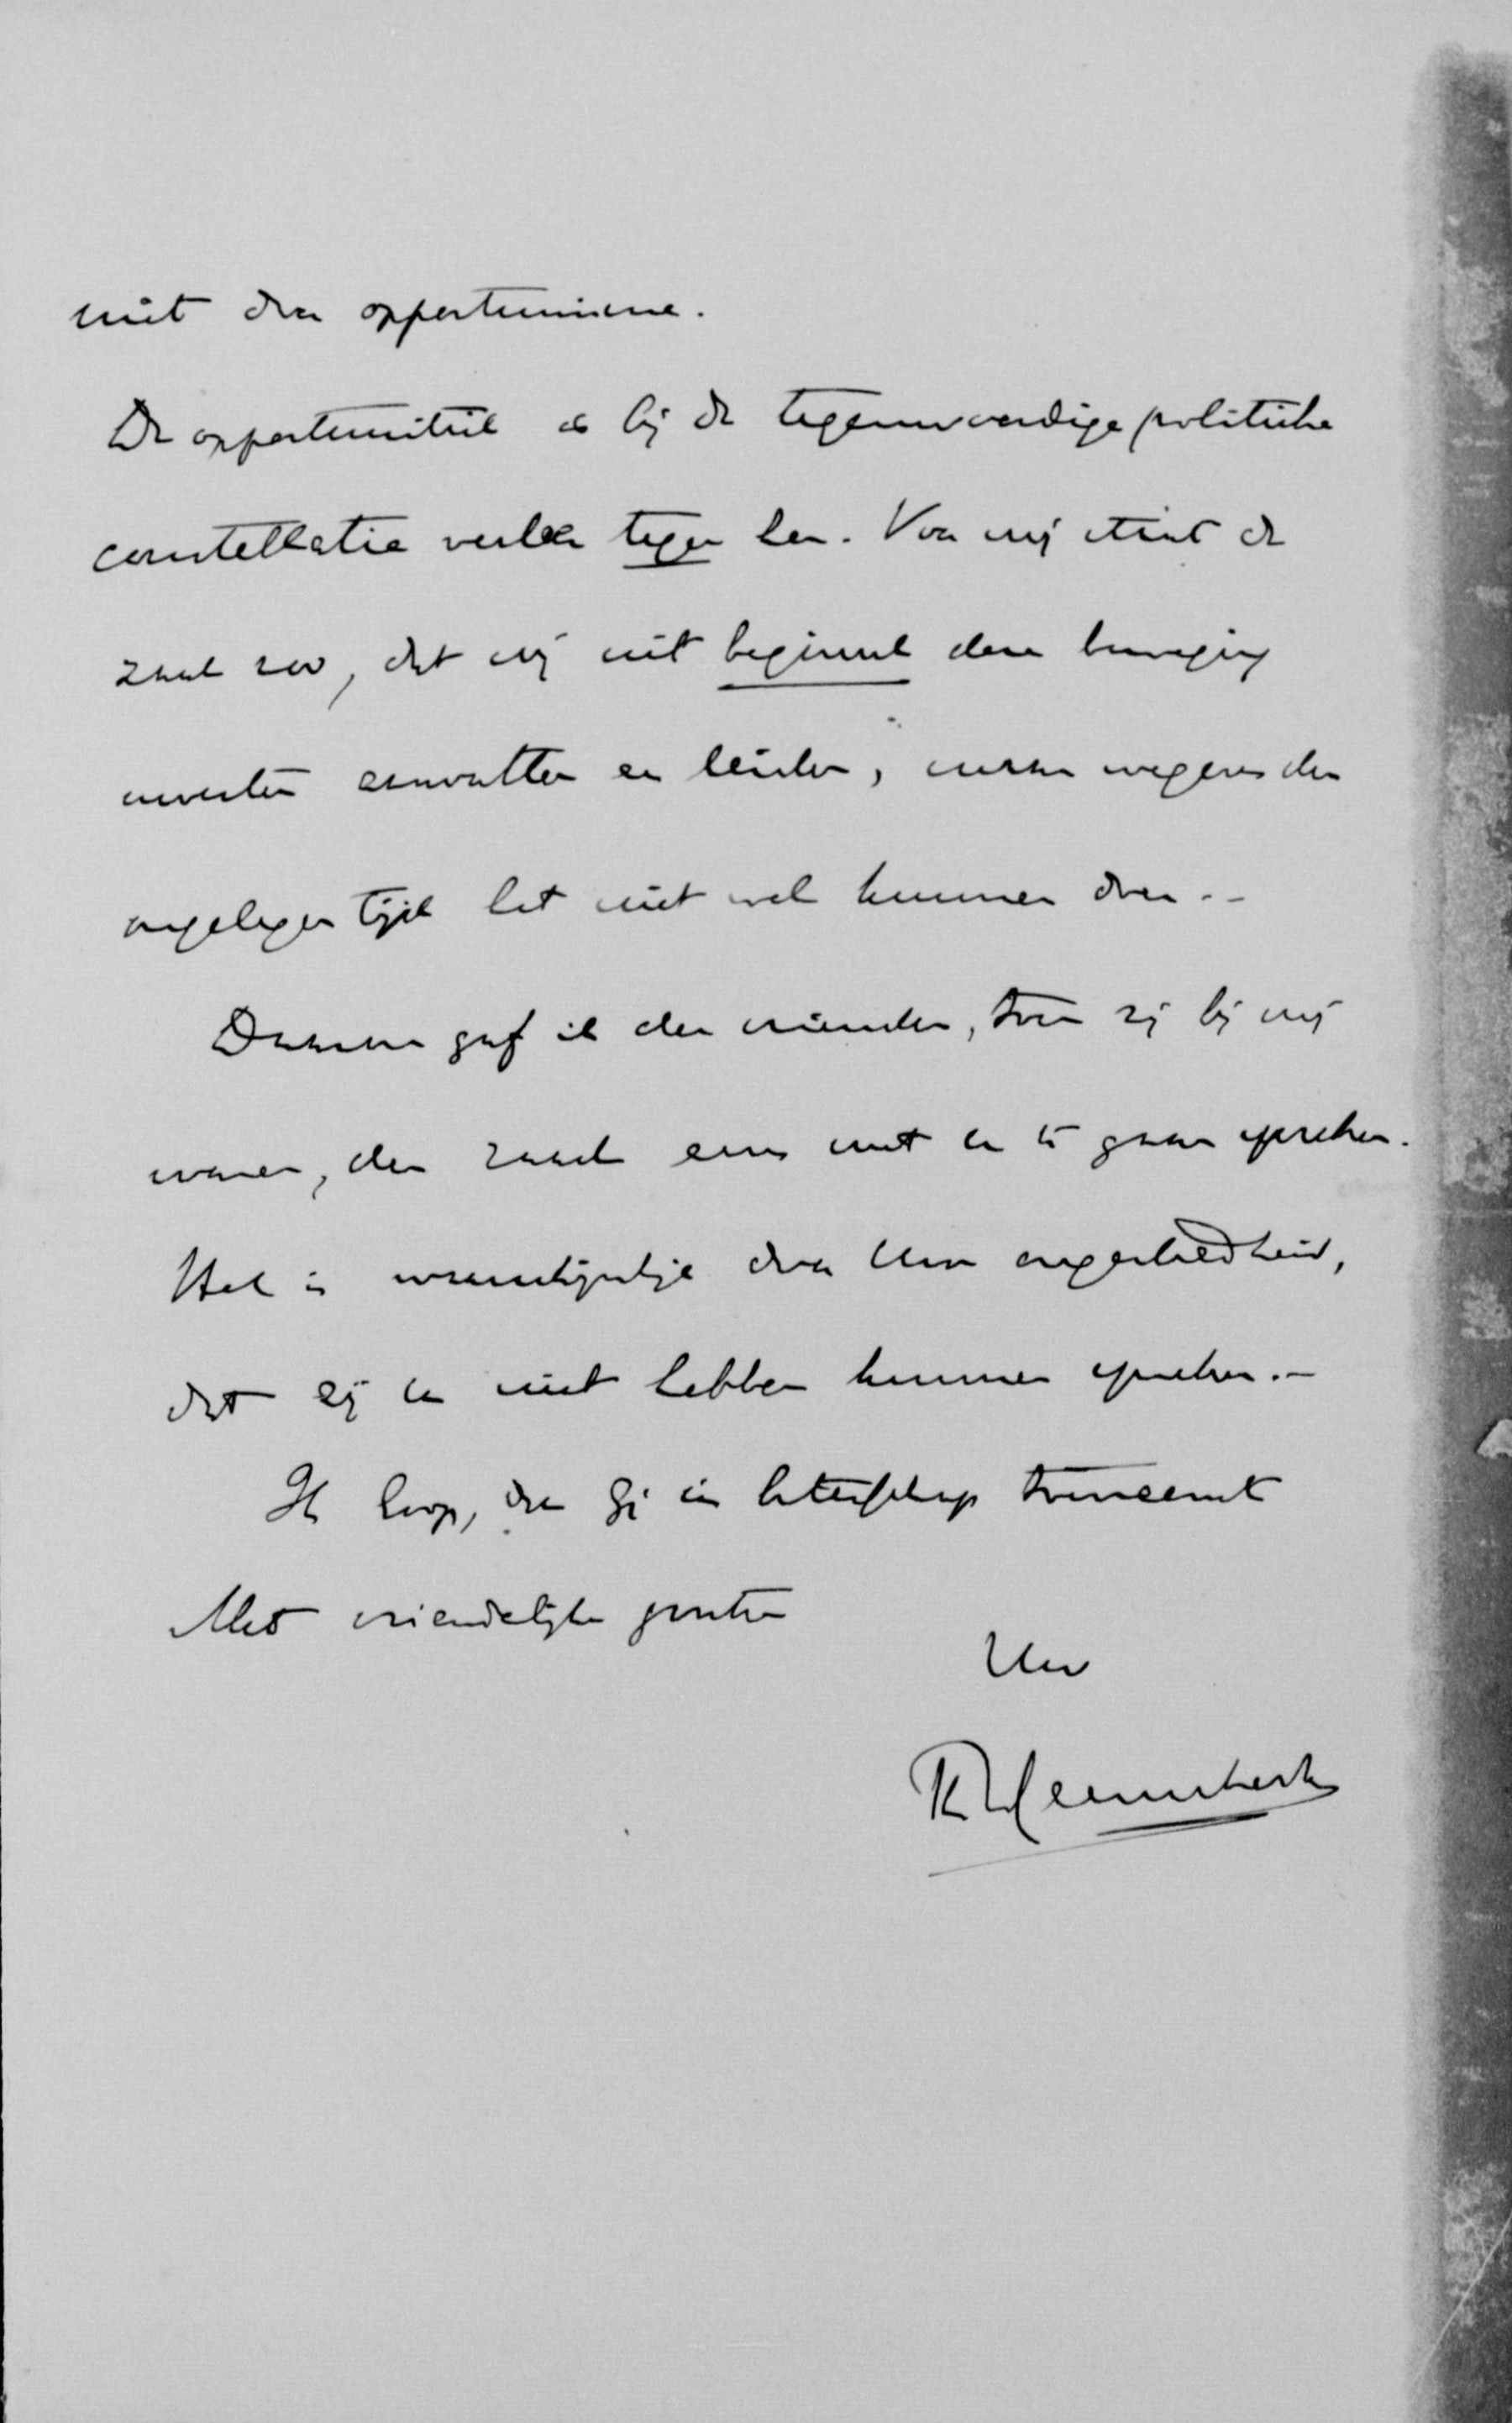 niet door opportunisme.
De opportuniteit is bij de tegenwoordige politieke
constellatie veeleer tegen hen. Voor mij staat de
zaak zoo, dat wij uit beginsel deze beweging
moesten aanvatten en leiden, maar wegens den
ongelegen tijd het niet wel kunnen doen.-
Daarom gaf ik den vrienden, toen zij bij mij
waren, den raad eens met u te gaan spreken.
Het is waarschijnlijk door Uw ongesteldheid,
dat zij u niet hebben kunnen spreken.-
Ik hoop, dat gij in beterschap toeneemt
Met vriendelijke groeten
Uw
Th Heemskerk